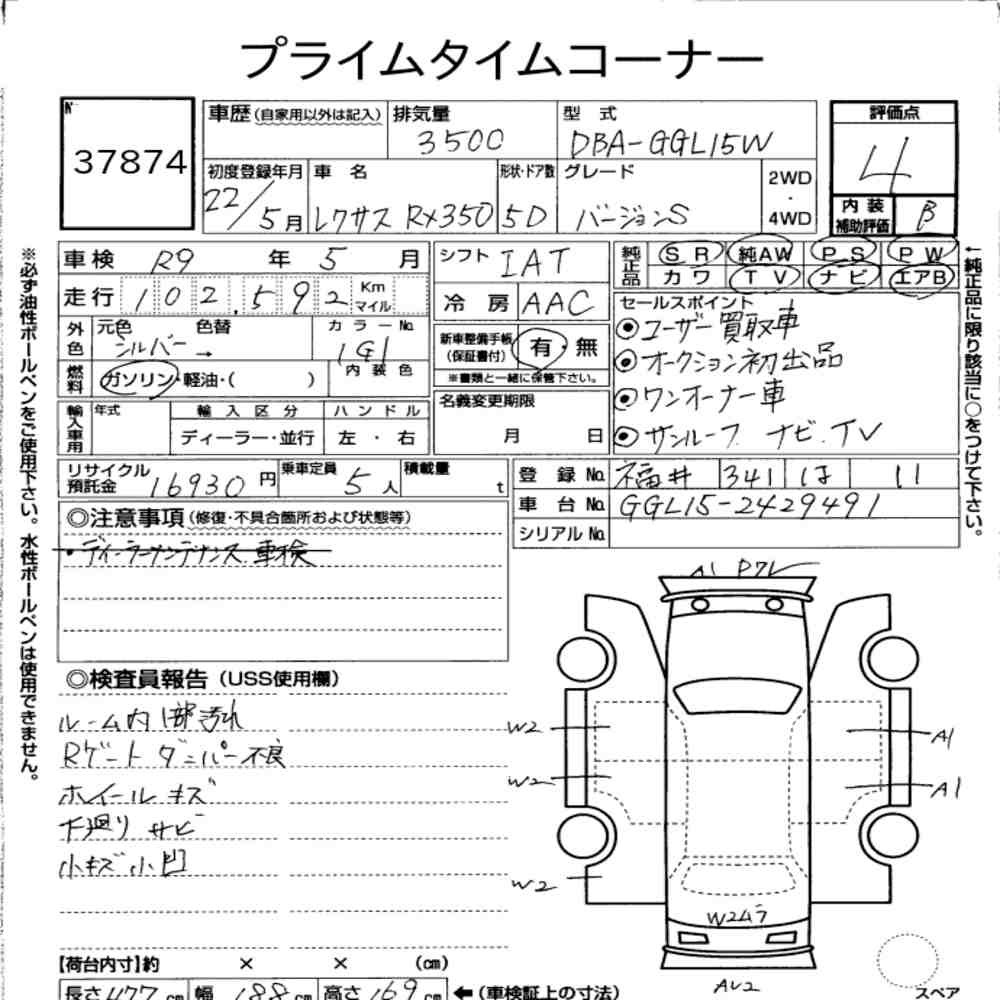 プライムタイムコーナー
№ 37874
車歴(自家用以外は記入) 排気量 3500 型 式 DBA-GGL15W
評価点 4
内装補助評価 B
初度登録年月 22/5月 車 名 レクサス RX350 形状・ドア数 5D グレード バージョンS 2WD・4WD
車検 R9 年 5 月
シフト IAT
純正品 SR 純AW PS PW
カワ TV ナビ エアB
走行 102,592 Km マイル
冷房 AAC
外色 元色 シルバー 色替 → カラーNo. 1G1
内装色
燃料 ガソリン・軽油・( )
新車整備手帳(保証書付) 有・無
※書類と一緒に保管下さい。
セールスポイント
◉ユーザー買取車
◉オークション初出品
◉ワンオーナー車
◉サンルーフ ナビ.TV
輸入車用 年式 輸入区分 ハンドル
ディーラー・並行 左・右
名義変更期限
月 日
リサイクル預託金 16930円 乗車定員 5人 積載量 t
登録No. 福井 341 は 11
車台No. GGL15-2429491
シリアルNo.
◎注意事項(修復・不具合箇所および状態等)
・ディーラーメンテナンス.車検
◎検査員報告(USS使用欄)
ルーム内1部汚れ
Rゲートダンパー不良
ホイールキズ
下廻りサビ
小キズ小凹
A1 Pクレ
W2
W2
W2
A1
A1
W2ムラ
AU2
スペア
【荷台内寸】約 × × (cm)
長さ477cm 幅188cm 高さ169cm ←(車検証上の寸法)
※必ず油性ボールペンをご使用下さい。水性ボールペンは使用できません。
←純正品に限り該当に○をつけて下さい。